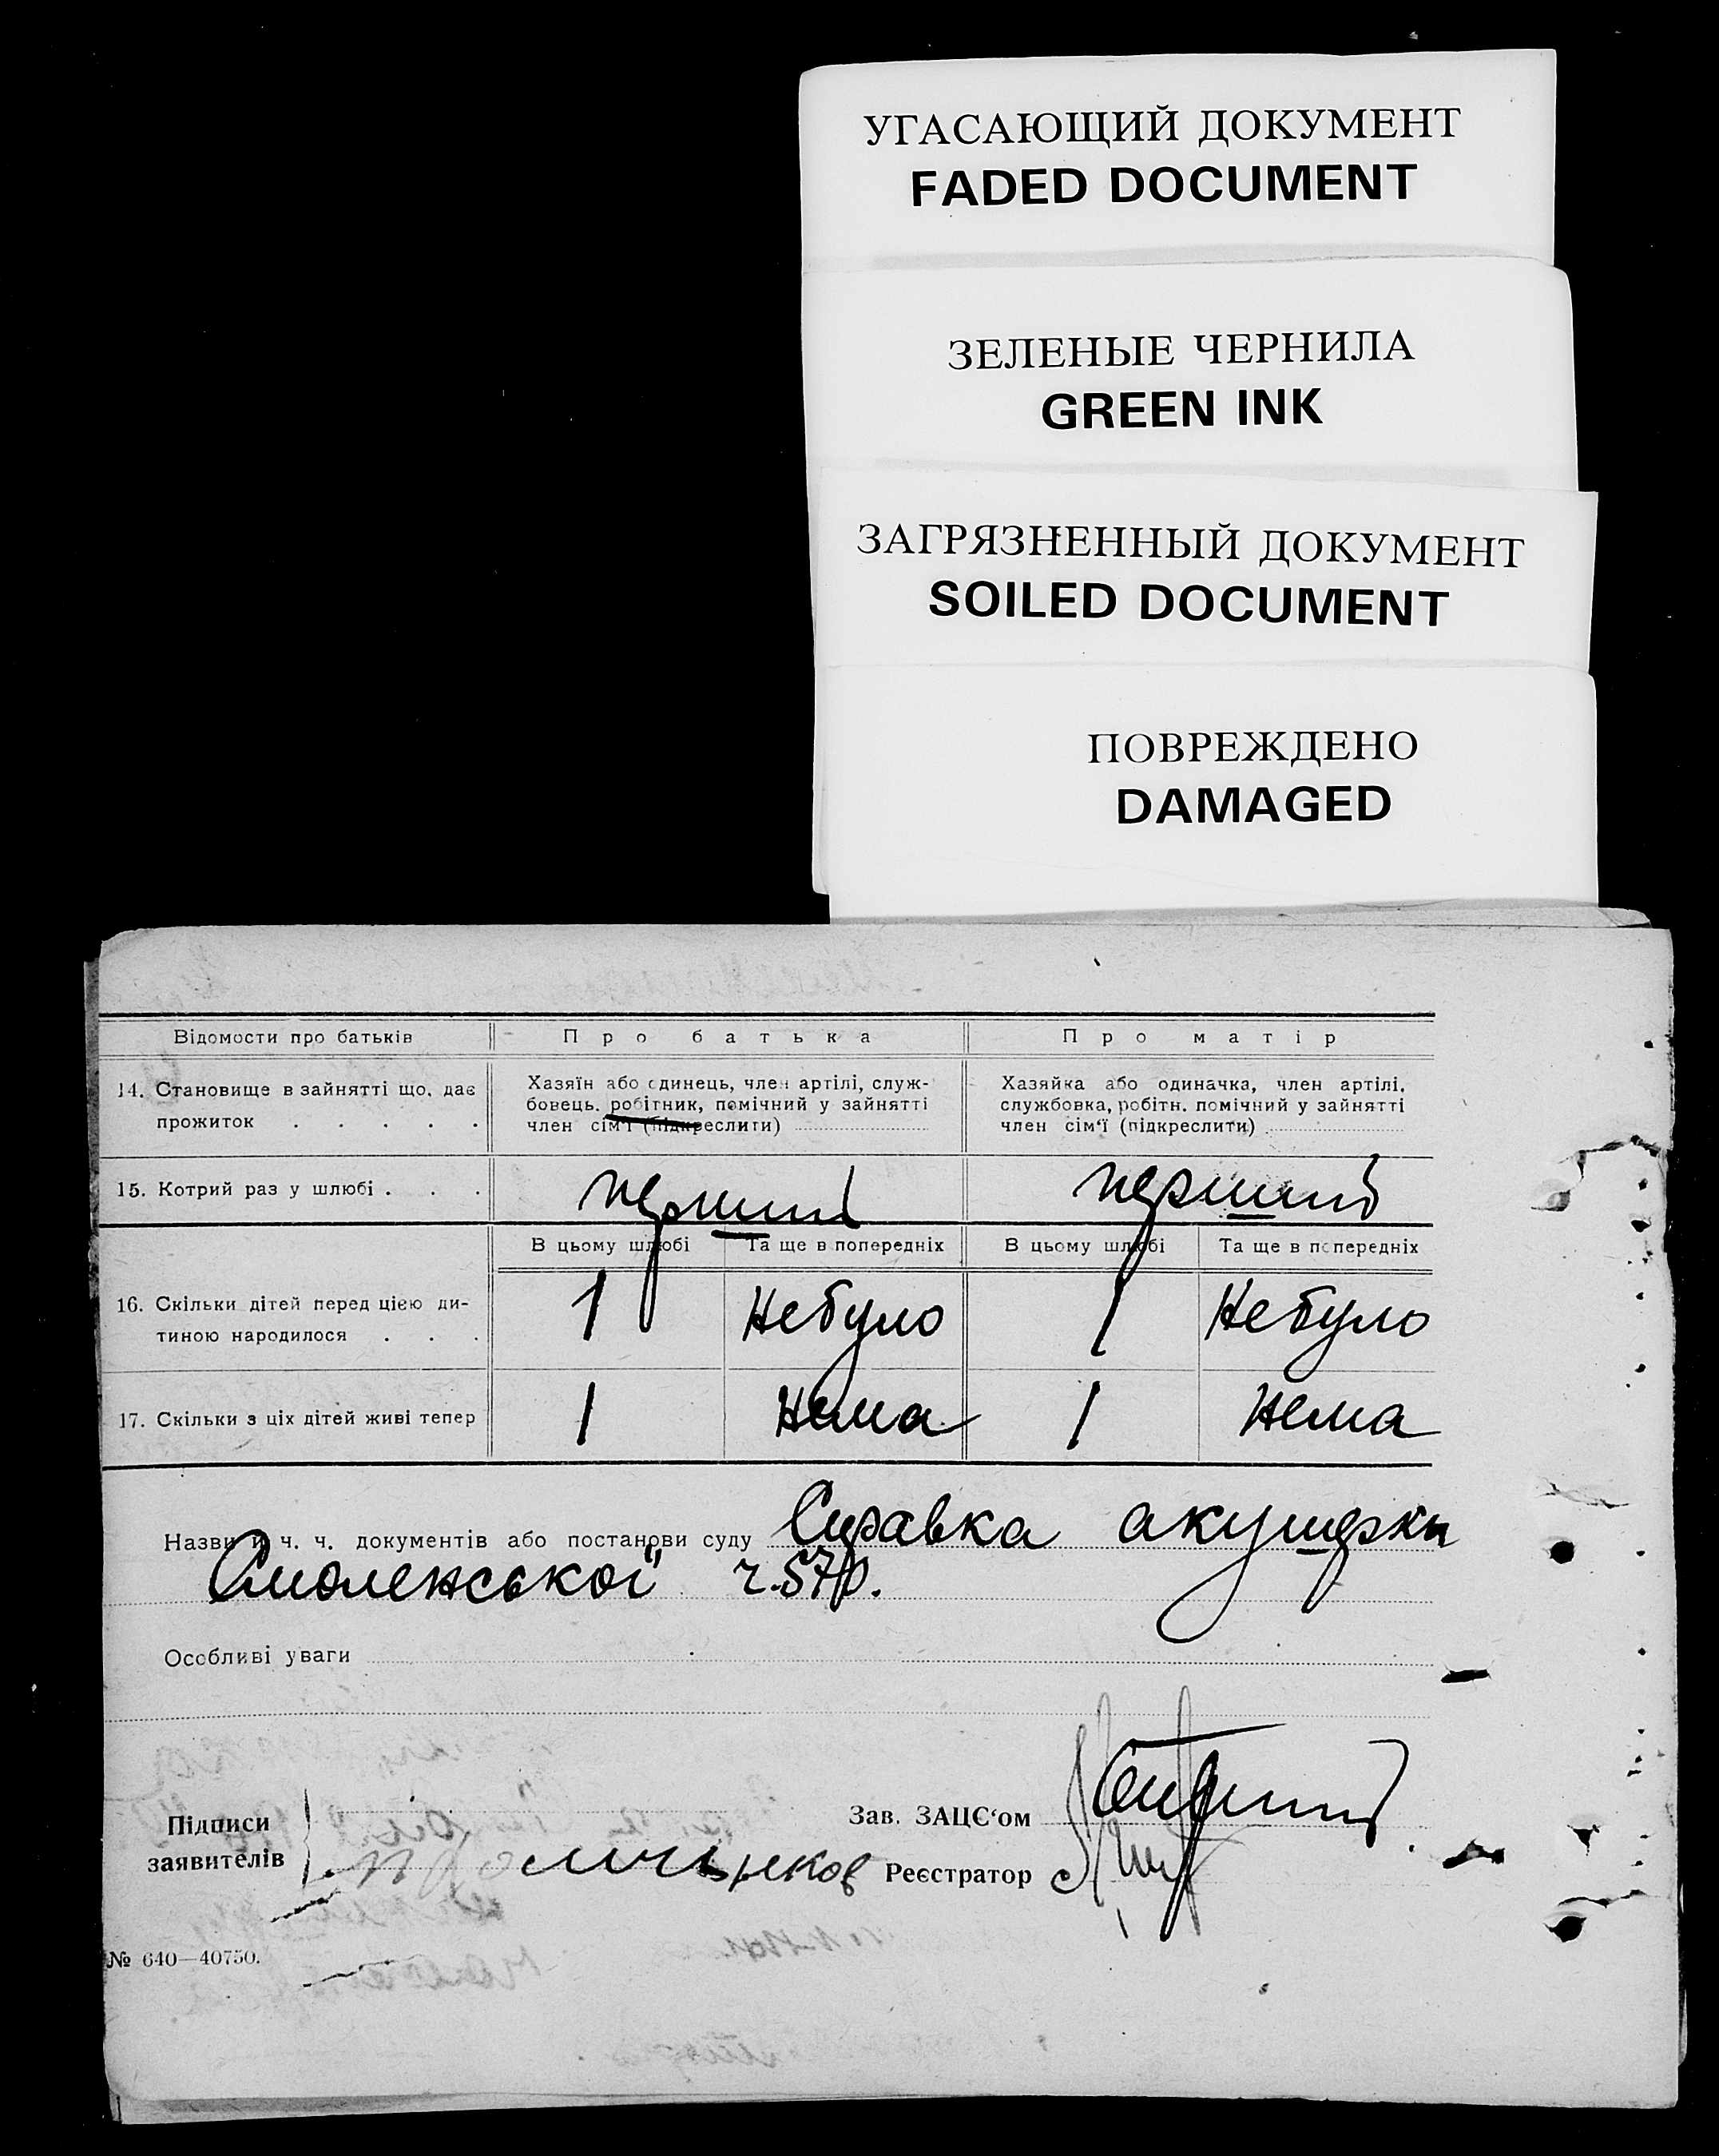 УГАСАЮЩИЙ ДОКУМЕНТ
FADED DOCUMENT
ЗЕЛЕНЫЕ ЧЕРНИЛА
GREEN INK
ЗАГРЯЗНЕННЫЙ ДОКУМЕНТ
SOILED DOCUMENT
ПОВРЕЖДЕНО
DAMAGED
Відомости про батьків Про батька Про матір
14. Становище в зайнятті що, дає прожиток . . . . .
Хазяїн або єдинець, член артілі, служ-
бовець, робітник, помічний у зайнятті
член сім'ї (підкреслити)
Хазяйка або одиначка, член артілі,
службовка, робітн. помічний у зайнятті
член сім'ї (підкреслити)
15. Котрий раз у шлюбі . . . перший перший
В цьому шлюбі Та ще в попередніх В цьому шлюбі Та ще в попередніх
16. Скільки дітей перед цією ди-
тиною народилося . . . 1 Небуло 1 Небуло
17. Скільки з ціх дітей живі тепер 1 Нема 1 Нема
Назви й ч. ч. документів або постанови суду Справка акушерки
Смоленської ч. 570.
Особливі уваги
Підписи
заявителів
Зав. ЗАЦС'ом
Реєстратор
№ 640—40750.